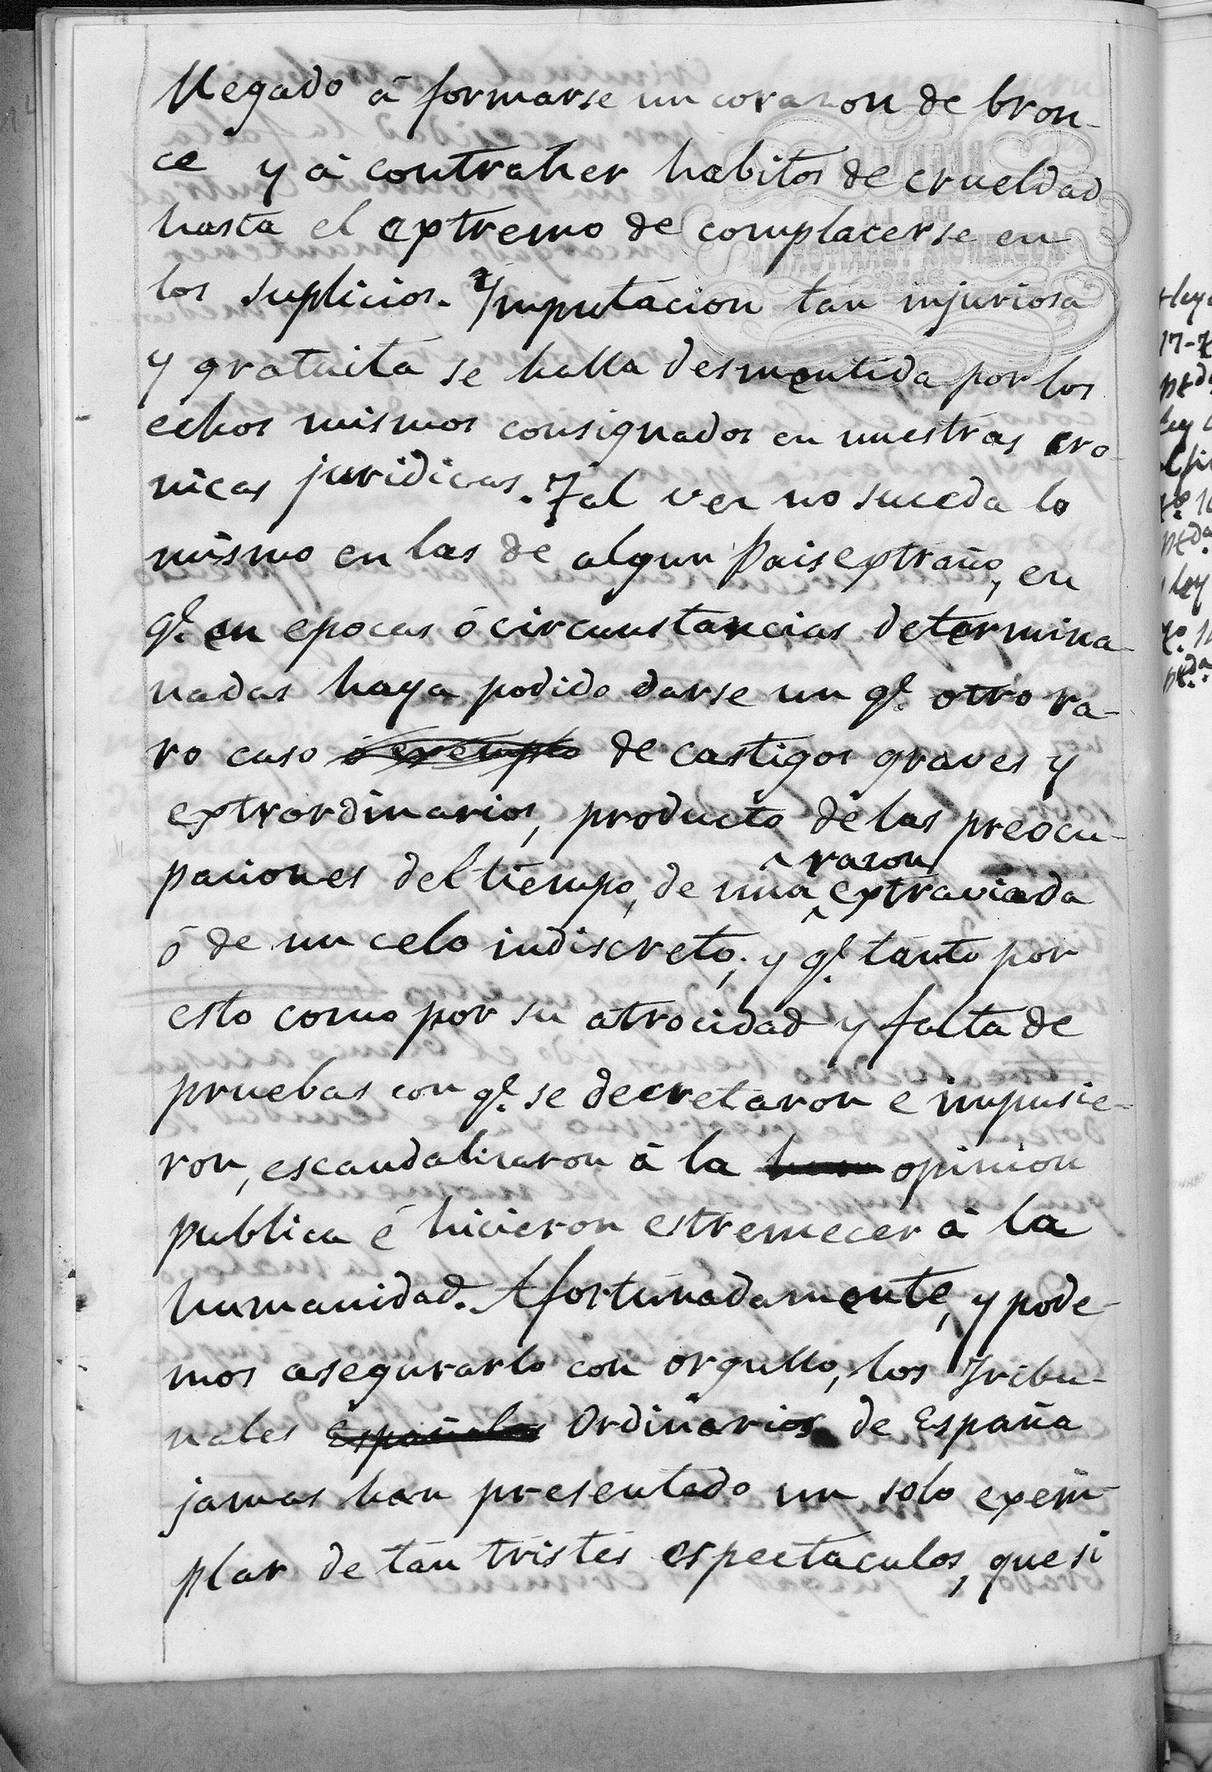 llegado á formarse un corazon de bron-
ce y á contraher habitos de crueldad
hasta el extremo de complacerse en
los suplicios. Imputacion tan injuriosa
y gratuita se halla desmentida por los
echos mismos consignados en nuestras cro-
nicas juridicas. Tal vez no suceda lo
mismo en las de algun Pais extraño, en
q.e en epocas ó circunstancias determina-
nadas haya podido darse un q.e otro ra-
ro caso ó exemplo de castigos graves y
extrordinarios, producto de las preocu-
paciones del tiempo, de una razon extraviada
ó de un celo indiscreto; y q.e tanto por
esto como por su atrocidad y falta de
pruebas con q.e se decretaron é impusie-
ron, escandalizaron á la opinion
publica é hicieron estremecer á la
humanidad. Afortunadamente, y pode-
mos asegurarlo con orgullo, los Tribu-
nales Españoles Ordinarios de España
jamas han presentado un solo exem-
plar de tan tristes espectaculos, que si